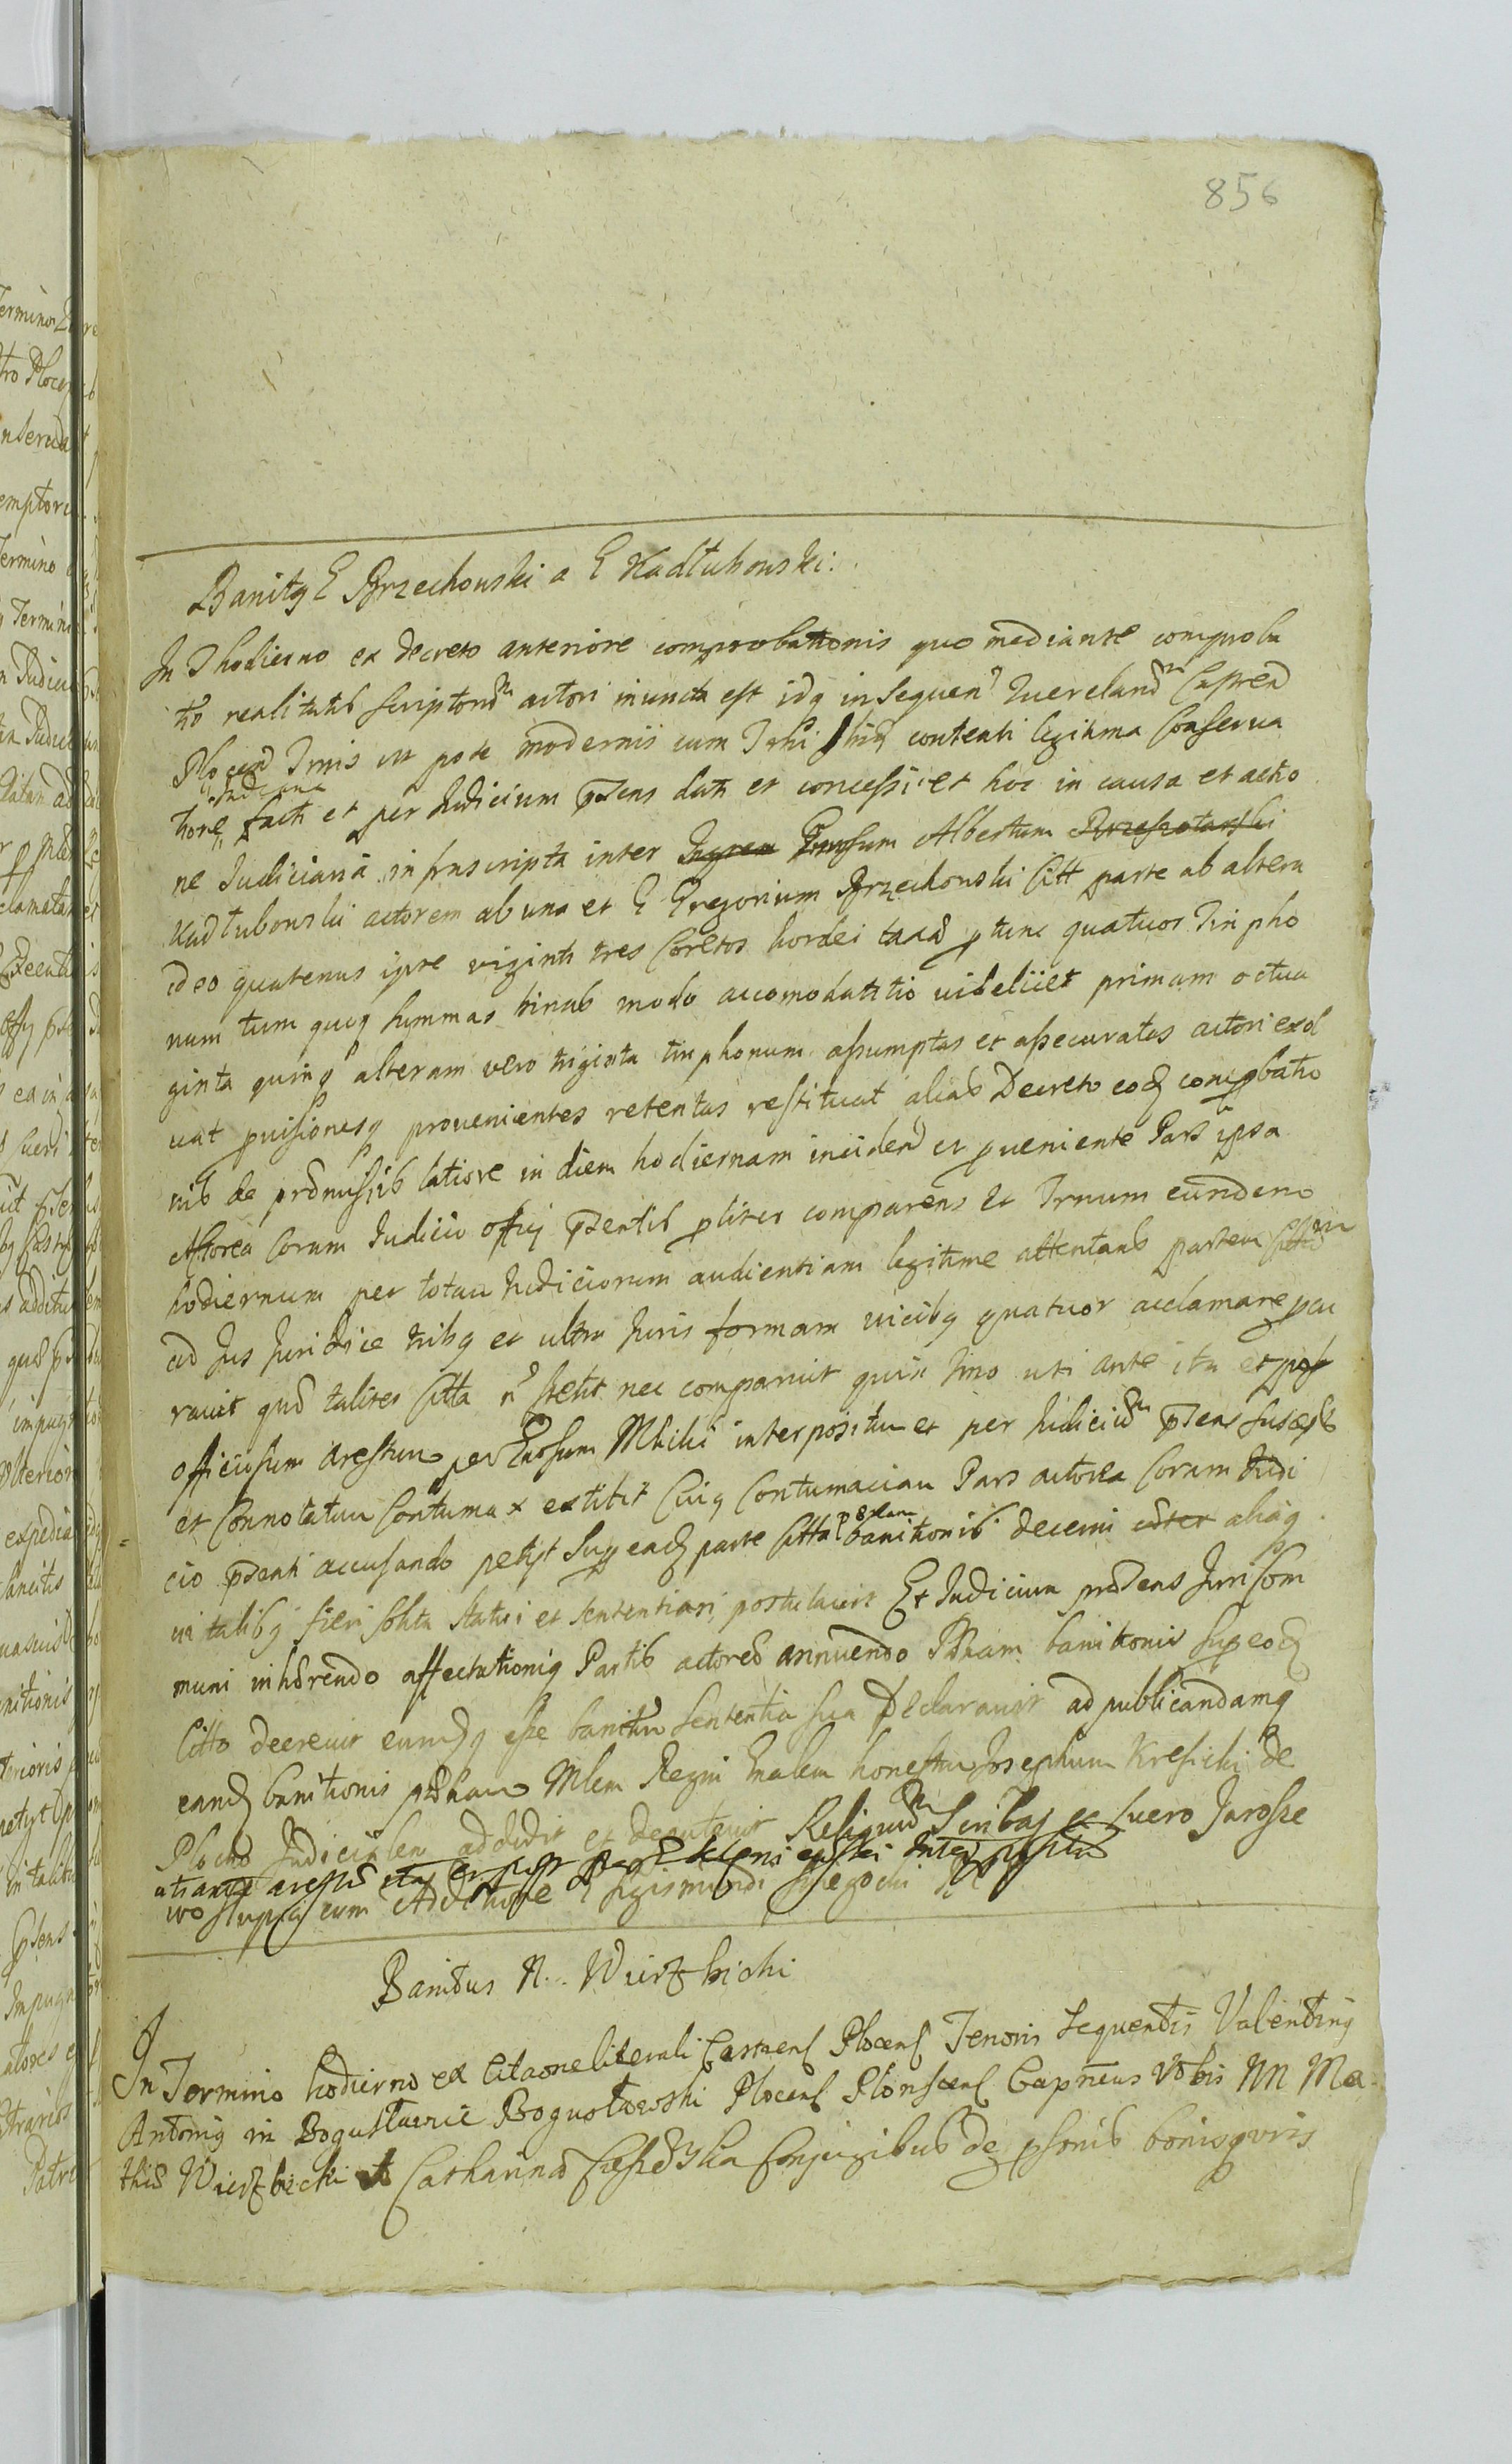 856
Banitq G Brzechowski a G Kadłubowski.
In T hodierno ex decreto anteriore comprobationis quo mediante comproba
tio realitatis scriptorum actori iniuncta est idq in sequen querelarum Castren
Plocen Trnis ut pote modernis cum contenti legitima Conserva
tione facti et per Judicium pntens dati et concessi et hoc in causa et actio
ne Judiciaria infrascripta inter Albertum
Kadłubowski actorem ab una et G Gregorium Brzechowski Citt parte ab altera
ideo quatenus ipse viginti tres Coretos hordei taxa p tunc quatuor Tinpho
num tum quoq summas binas modo accomodatitio videlicet primam octua
ginta quinq alteram vero triginta tinphonum assumptas et assecuratas actori exol
vat provisionesq provenientes retentas restituat alias Decreto eod comprobatio
nis de praemissis latiore in diem hodiernam inciden et proveniente Pars ipsa
Actorea Coram Judicio officij pntentis pliter comparens et Trnum eundem
hodiernum per totam Judiciorum audientiam legitime attentans partem Cittam
ad Jus Juridice tribq et ultra Juris formam vicibq quatuor acclamare procu
ravit quae taliter Citta n stetit nec comparuit quin imo uti ante ita et post
officiosum arestum per interpositum et per Judicium pntens susceptum
et Connotatum Contumax extitit Cuiq Contumaciam Pars actorea Coram Judi
cio pntenti accusando petijt Sup ead parte Citta paenam banitionis decerni aliaq
in talibq fieri solita statui et sententiari postulavit Et Judicium pntens Juri Com
muni inhaerendo affectationiq Partis actoreae annuendo Paenam banitionis sup eod
Citto decrevit eumdq esse banitum sententia sua Declaravit ad publicandamq
eand banitionis paenam Mlem Regni gnalem honestum Josephum Kresicki de
Plocko Judicialem addidit et deputavit Reliquum Scribas ex suero Jarosze
wo Słupia cum Additione G Sigismundi
Banitus N. Wierzbicki
In Termino hodierno ex Citaone literali Castrens Plocens Tenoris Sequentis Valentinq
Antoniq in Bogusławice Bogusławski Plocens Plonscens Capneus Vobis NN Ma
thiae Wierzbicki et Catharinae Conjugibus de psonis bonisqvris